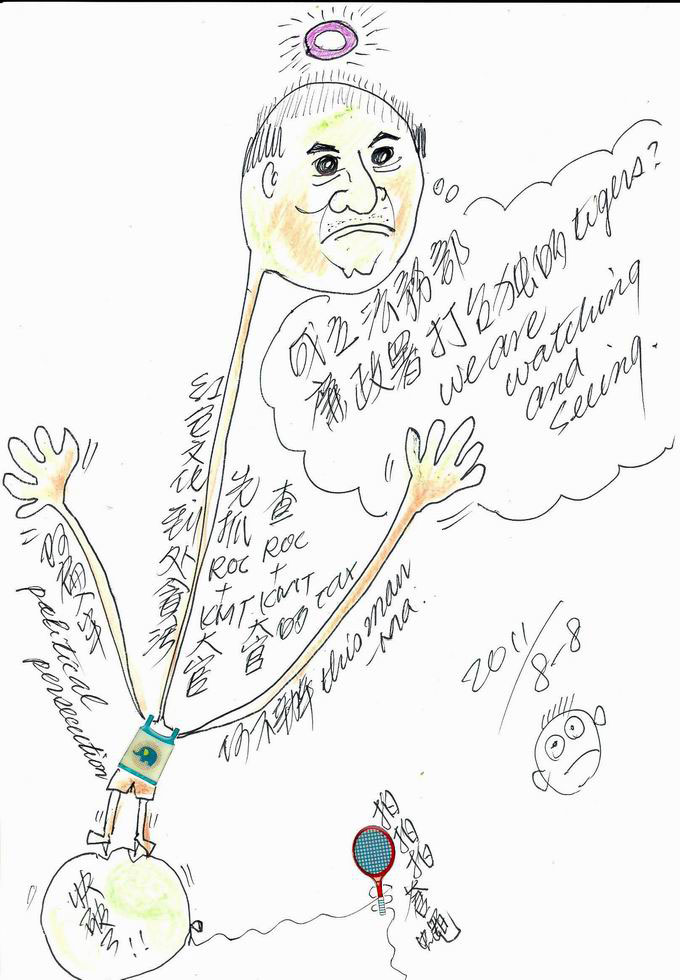 成立法務部
廉政署打自己的 tigers?
we are
watching
and
seeing.
紅色文化到外貪污
先抓ROC+KMT大官
查ROC+KMT大官的tax
political
persecution
this man
ma.
2011/8-8
吹破了!!
拍拍拍